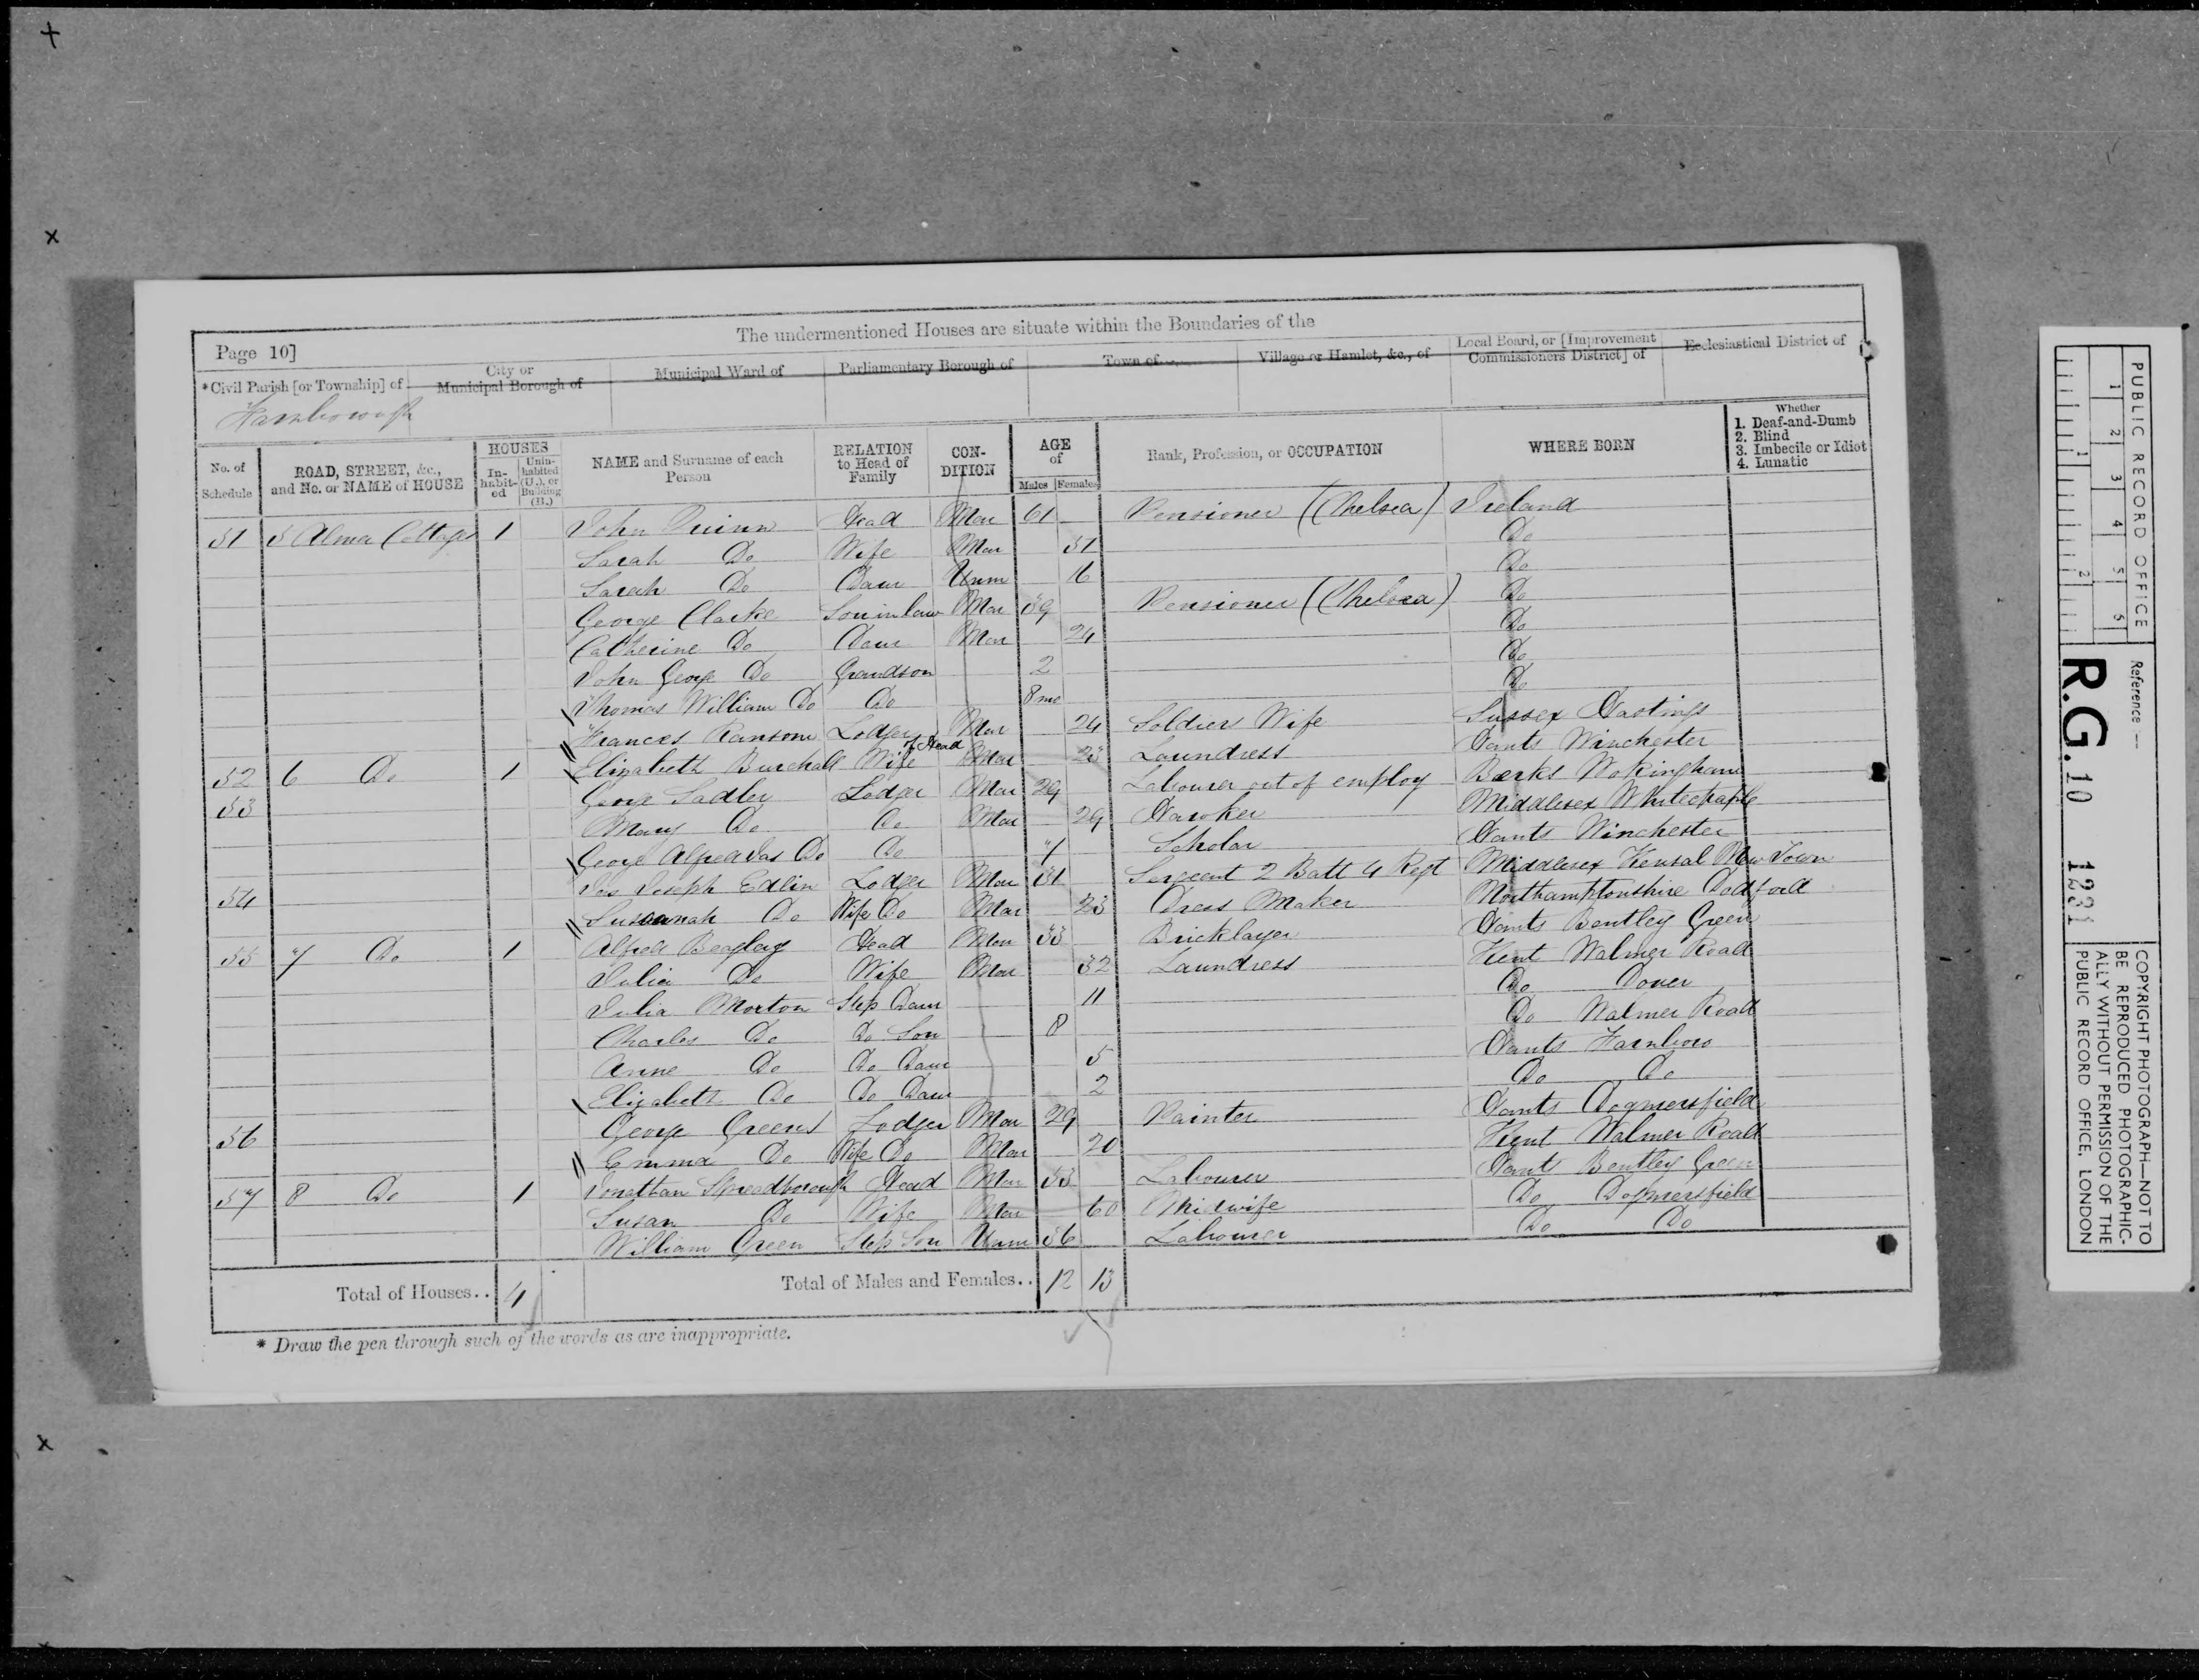 The undermentioned Houses are situate within the Boundaries of the
Page 10]
*Civil Parish [or Township] of
City or Municipal Borough of
Municipal Ward of
Parliamentary Borough of
Town of
Village or Hamlet, &c., of
Local Board, or [Improvement Commissioners District] of
Ecclesiastical District of
Farnborough
No. of Schedule
ROAD, STREET, &c., and No. or NAME of HOUSE
HOUSES
In-habit-ed
Unin-habited (U.), or Building (B.)
NAME and Surname of each Person
RELATION to Head of Family
CON-DITION
AGE of
Males Females
Rank, Profession, or OCCUPATION
WHERE BORN
Whether
1. Deaf-and-Dumb
2. Blind
3. Imbecile or Idiot
4. Lunatic
51 5 Alma Cottages 1 John Quinn Head Mar 61 Pensioner (Chelsea) Ireland
Sarah Do Wife Mar 51 Do
Sarah Do Daur Unm 16 Do
George Clarke Son in law Mar 39 Pensioner (Chelsea) Do
Catherine Do Daur Mar 24 Do
John George Do Grandson 2 Do
Thomas William Do Do 8 mo Do
Frances Ransom Lodger Mar 24 Soldiers Wife Sussex Hastings
52 6 Do 1 Elizabeth Burchall Wife of Head Mar 23 Laundress Hants Winchester
53 George Sadler Lodger Mar 29 Labourer out of employ Berks Wokingham
Mary Do Do Mar 29 Hawker Middlesex Whitechaple
George Do Do 7 Scholar Hants Winchester
54 Joseph Edlin Lodger Mar 31 Sergeent 2 Batt 4 Regt Middlesex Kensal New Town
Susannah Do Wife Do Mar 23 Dress Maker Northamptonshire Dodford
55 7 Do 1 Alfred Beagley Head Mar 33 Bricklayer Hants Bentley Green
Julia Do Wife Mar 32 Laundress Kent Walmer Road
Julia Morton Step Daur 11 Do Dover
Charles Do Do Son 8 Do Walmer Road
Anne Do Do Daur 5 Hants Farnboro
Elizabeth Do Do Daur 2 Do Do
56 George Greens Lodger Mar 29 Painter Hants Dogmersfield
Emma Do Wife Do Mar 20 Kent Walmer Road
57 8 Do 1 Jonathan Spreadborough Head Mar 53 Labourer Hants Bentley Green
Susan Do Wife Mar 60 Midwife Do Dogmersfield
William Green Step Son Unm 36 Labourer Do Do
Total of Houses.. 4
Total of Males and Females.. 12 13
* Draw the pen through such of the words as are inappropriate.
PUBLIC RECORD OFFICE
1 2 3 4 5 6
1 2
Reference :—
R.G. 10 1231
COPYRIGHT PHOTOGRAPH—NOT TO
BE REPRODUCED PHOTOGRAPHIC-
ALLY WITHOUT PERMISSION OF THE
PUBLIC RECORD OFFICE, LONDON